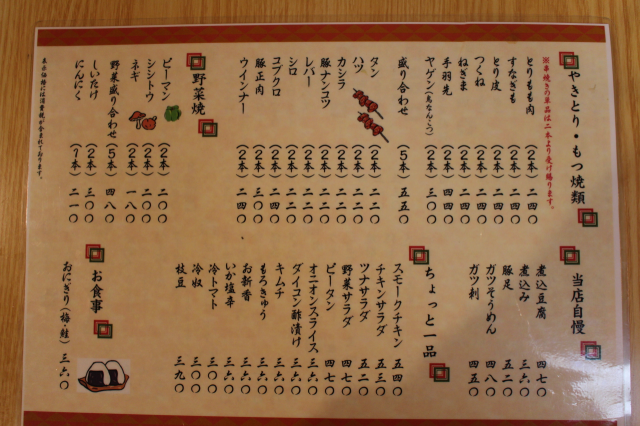 やきとり・もつ焼類
※串焼きの単品は二本より受け賜ります。
とりもも肉 (2本) 二四〇
すなぎも (2本) 二四〇
とり皮 (2本) 二四〇
つくね (2本) 二四〇
ねぎま (2本) 二四〇
手羽先 (2本) 四四〇
ヤゲン(鳥なんこつ) (2本) 三〇〇
盛り合わせ (5本) 五五〇
タン (2本) 二二〇
ハツ (2本) 二二〇
カシラ (2本) 二二〇
豚ナンコツ (2本) 二二〇
レバー (2本) 二二〇
シロ (2本) 二二〇
コブクロ (2本) 二二〇
豚正肉 (2本) 三〇〇
ウインナー (2本) 二四〇
野菜焼
ピーマン (2本) 二〇〇
シシトウ (2本) 二〇〇
ネギ (2本) 一八〇
野菜盛り合わせ (5本) 四八〇
しいたけ (2本) 三〇〇
にんにく (1本) 二一〇
表示価格には消費税が含まれております。
当店自慢
煮込豆腐 四七〇
煮込み 三六〇
豚足 五二〇
ガツそうめん 四八〇
ガツ刺 四五〇
ちょっと一品
スモークチキン 五四〇
チキンサラダ 五三〇
ツナサラダ 五二〇
野菜サラダ 四七〇
ピータン 四七〇
オニオンスライス 三六〇
ダイコン酢漬け 三六〇
キムチ 三六〇
もろきゅう 三六〇
お新香 三六〇
いか塩辛 三六〇
冷トマト 三六〇
冷奴 三〇〇
枝豆 三九〇
お食事
おにぎり(梅・鮭) 三六〇